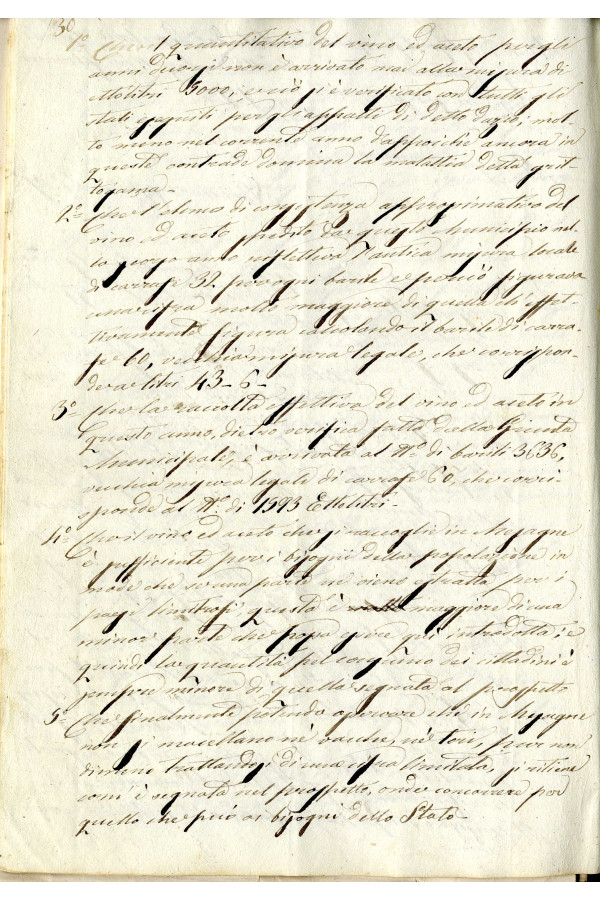 30
1° Che il quantitativo del vino ed aceto per gli
anni decorsi non è arrivato mai alla misura di
ettolitri 5000, e ciò si è verificato con tutti gli
stati eseguiti per gli appalti di detto dazio, mol-
to meno nel corrente anno dapoichè ancora in
queste contrade domina la malattia detta grit-
togama.
2° Che l'elenco di consistenza approssimativo del
vino ed aceto fatto da questo Municipio nel-
lo scorso anno rifletteva l'antica misura locale
di carrafe 32 per ogni barile e perciò figurava
una cifra molto maggiore di quella ch'effet-
tivamente figura calcolando il barile di carra-
fe 60, vecchia misura legale, che corrispon-
de a litri 43-6-
3° Che la raccolta effettiva del vino ed aceto in
questo anno, dietro verifica fatta dalla Giunta
Municipale, è arrivata al N° di barili 3636,
vecchia misura legale di carrafe 60, che corri-
sponde al N° di 1593 Ettolitri.
4° Che il vino ed aceto che si raccoglie in Mesagne
è sufficiente per i bisogni della popolazione in
modo che se una parte ne viene estratta per i
paesi limitrofi questa è maggiore di una
minor parte che possa essere qui introdotta; e
quindi la quantità pel consumo dei cittadini è
sempre minore di quella segnata al prospetto
5° Che finalmente potendo osservare che in Mesagne
non si macellano nè vacche, nè tori, pur non
dimeno trattandosi di una cifra limitata, si ritiene
com'è segnata nel prospetto, onde concorrere per
quello che può ai bisogni dello Stato-